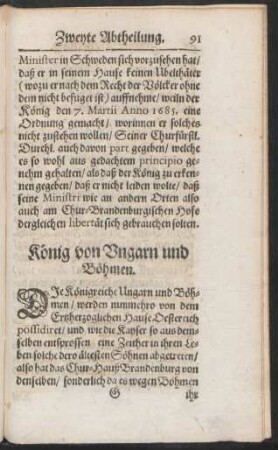 Zweyte Abtheilung. 91
Minister in Schweden sich vorzusehen hat/
daß er in seinem Hause keinen Ubelthäter
(wozu er nach dem Recht der Völcker ohne
dem nicht befuget ist) auffnehme/ weiln der
König den 7. Martii Anno 1685. eine
Ordnung gemacht/ worinnen er solches
nicht zustehen wollen/ Seiner Churfürstl.
Durchl. auch davon part gegeben/ welche
es so wohl aus gedachtem principio ge-
nehm gehalten/ als daß der König zu erken-
nen gegeben/ daß er nicht leiden wolte/ daß
seine Ministri wie an andern Orten also
auch am Chur-Brandenburgischen Hofe
dergleichen libertät sich gebrauchen solten.
König von Vngarn und
Böhmen.
DIe Königreiche Ungarn und Böh-
men/ werden nunmehro von dem
Ertzherzoglichen Hause Oesterreich
possidiret/ und wie die Kayser so aus dem-
selben entsprossen eine Zeither in ihren Le-
ben solche dero ältesten Söhnen abgetreten/
also hat das Chur-Hauß Brandenburg von
denselben/ sonderlich da es wegen Böhmen
G ihr